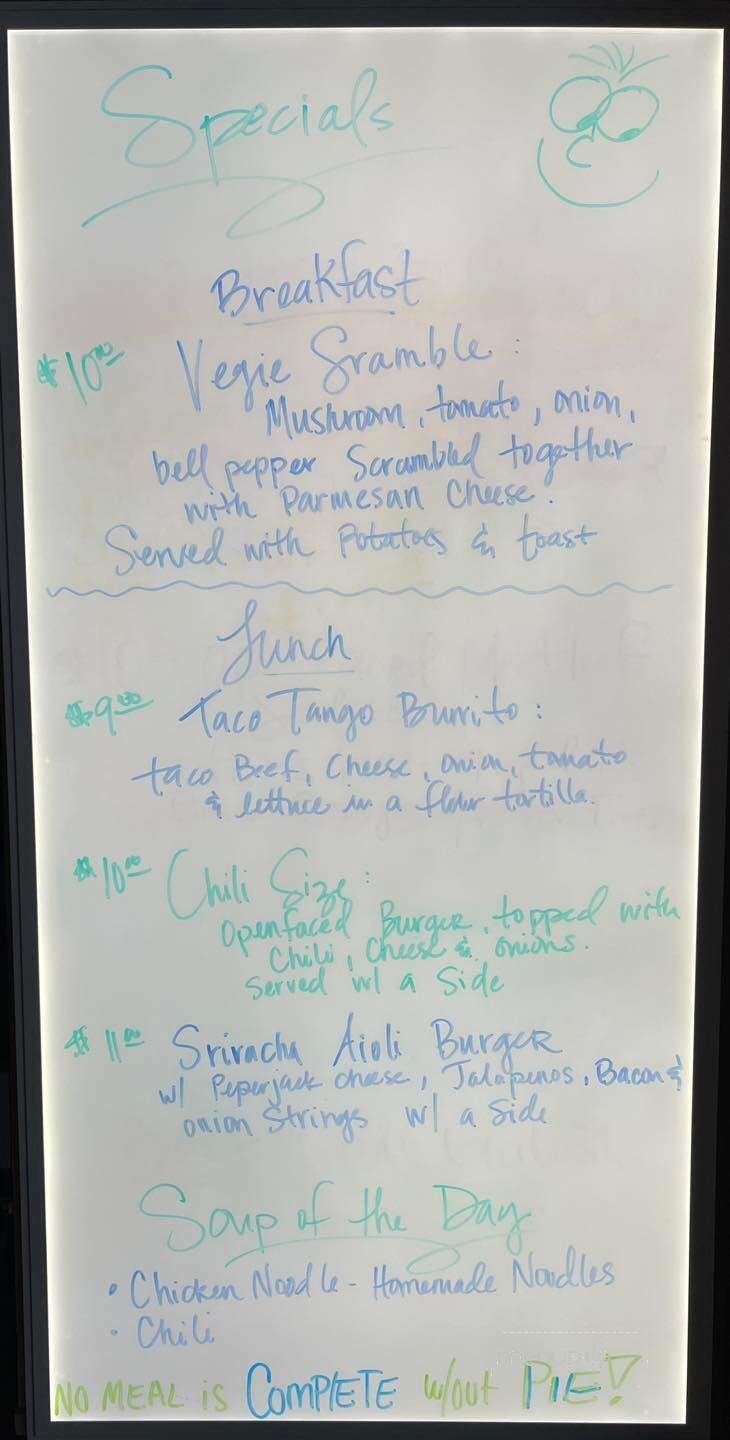 Specials
Breakfast
$10.00 Vegie Sramble:
Mushroom, tomato, onion,
bell pepper Scrambled together
with Parmesan Cheese.
Served with Potatoes & toast
Lunch
$9.00 Taco Tango Burrito:
taco Beef, Cheese, onion, tomato
& lettuce in a flour tortilla.
$10.00 Chili Size:
Openfaced Burger, topped with
Chili, Cheese & onions.
Served w/ a Side
$11.00 Sriracha Aioli Burger
w/ Peperjack cheese, Jalapenos, Bacon &
onion Strings w/ a Side
Soup of the Day
• Chicken Noodle - Homemade Noodles
• Chili
NO MEAL is COMPLETE w/out PIE!